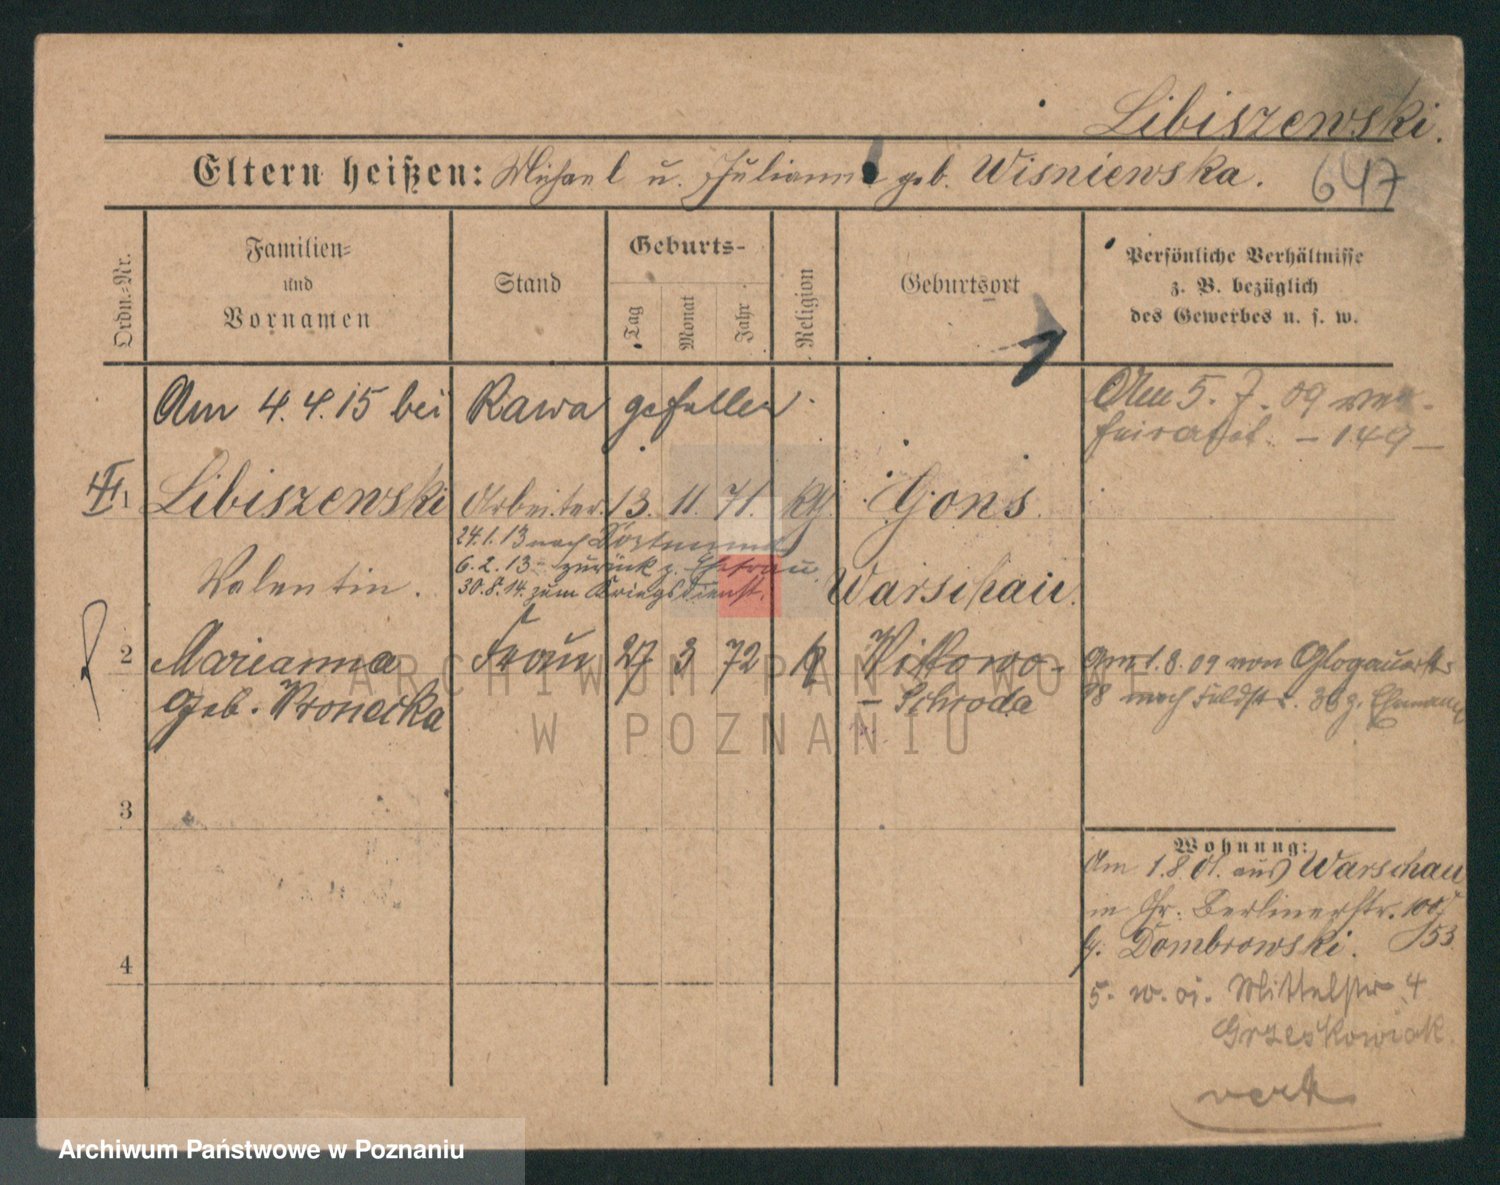 Libiszewski.
Eltern heißen: Michael u. Julianna geb. Wisniewska.
647
Ordn.-Nr.
Familien-
und
Vornamen
Stand
Geburts-
Tag
Monat
Jahr
Religion
Geburtsort
Persönliche Verhältnisse
z. B. bezüglich
des Gewerbes u. s. w.
Am 4.4.15 bei Rawa gefallen.
Am 5. 7. 09 ver-
heiratet - 149 -
1 Libiszewski Arbeiter 13. 11. 71. kth. Gons
24.1.13 nach Dortmund
6.2.13 - zurück z. Ehefrau.
30.8.14. zum Kriegsdienst.
Valentin. Warschau.
2 Marianna Frau 27 3 72 k Wittowo-
geb. Wronecka - Schroda
Am 1.8.09 von Glogauerstr.
98 nach Feldstr. 30 z. Ehemann
3
4
Wohnung:
Am 1.8 01. aus Warschau
in Gr. Berlinerstr. 100
b. Dombrowski. 153
5. Mittelstr. 4
Grzeskowiak
verh
ARCHIWUM PAŃSTWOWE
W POZNANIU
Archiwum Państwowe w Poznaniu